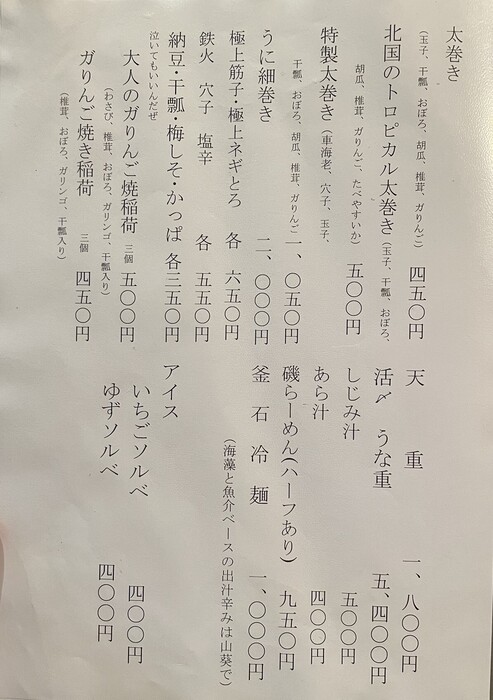 太巻き
（玉子、干瓢、おぼろ、胡瓜、椎茸、ガりんご） 四五〇円
北国のトロピカル太巻き（玉子、干瓢、おぼろ、
胡瓜、椎茸、ガりんご、たべやすいか） 五〇〇円
特製太巻き（車海老、穴子、玉子、
干瓢、おぼろ、胡瓜、椎茸、ガりんご 一、〇五〇円
うに細巻き 二、〇〇〇円
極上筋子・極上ネギとろ 各 六五〇円
鉄火 穴子 塩辛 各 五五〇円
納豆・干瓢・梅しそ・かっぱ 各三五〇円
泣いてもいいんだぜ
大人のガりんご焼稲荷 三個 五〇〇円
（わさび、椎茸、おぼろ、ガリンゴ、干瓢入り）
ガりんご焼き稲荷 三個 四五〇円
（椎茸、おぼろ、ガリンゴ、干瓢入り）
天重 一、八〇〇円
活〆 うな重 五、四〇〇円
しじみ汁 五〇〇円
あら汁 四〇〇円
磯らーめん（ハーフあり） 九五〇円
釜石冷麺 一、〇〇〇円
（海藻と魚介ベースの出汁辛みは山葵で）
アイス
いちごソルベ 四〇〇円
ゆずソルベ 四〇〇円